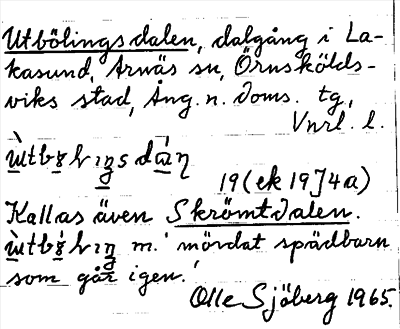 Utbölingsdalen, dalgång i La-
kasund, Arnäs sn, Örnskölds-
viks stad, Ång. n. doms. tg,
Vnrl. l.
19(ek 19J4a)
Kallas även Skrömtdalen.
m. ' mördat spädbarn
som går igen.'
Olle Sjöberg 1965.